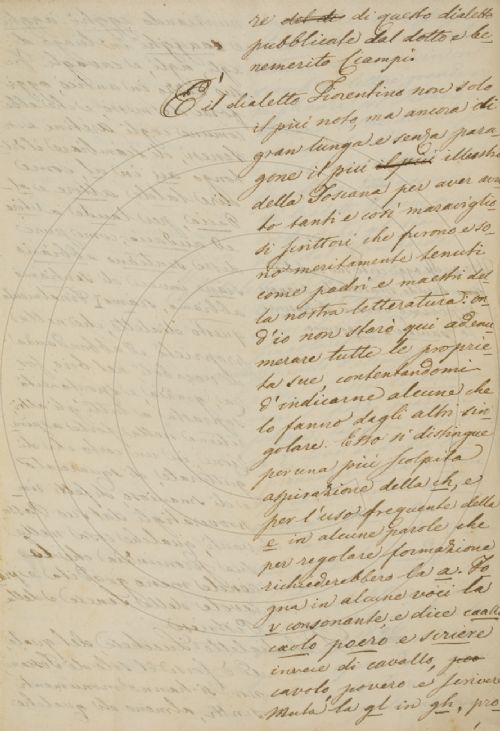 re del di di questo dialetto
pubblicate dal dotto e be-
nemerito Ciampi.
È il dialetto Fiorentino non solo
il più noto, ma ancora di
gran lunga e senza para
gone il più il più illustre
della Toscana per aver avu
to tanti e così maraviglio-
si scrittori che furono e so-
no meritamente tenuti
come padri e maestri del-
la nostra letteratura: on
d'io non starò qui ad enu
merare tutte le proprie-
tà sue, contentandomi
d'indicarne alcune che
lo fanno dagli altri sin-
golare. Esso si distingue
per una più scolpita
aspirazione della ch, e
per l'uso frequente della
e in alcune parole che
per regolare formazione
richiederebbero la a. To
gna in alcune voci la
v consonante e dice caallo
caolo poero e scriere
invece di cavallo, poo
cavolo, povero e scrivere
Muta la gl in gh, pro